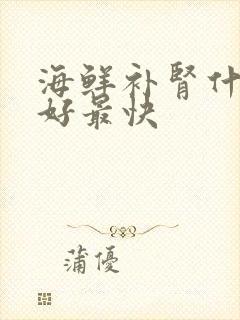 海鲜补肾什
好最快
蒲優